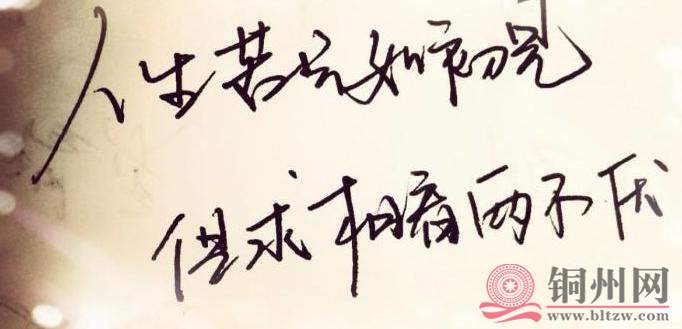 人生若只如初见
但求相看两不厌
铜州网
www.bltzw.com